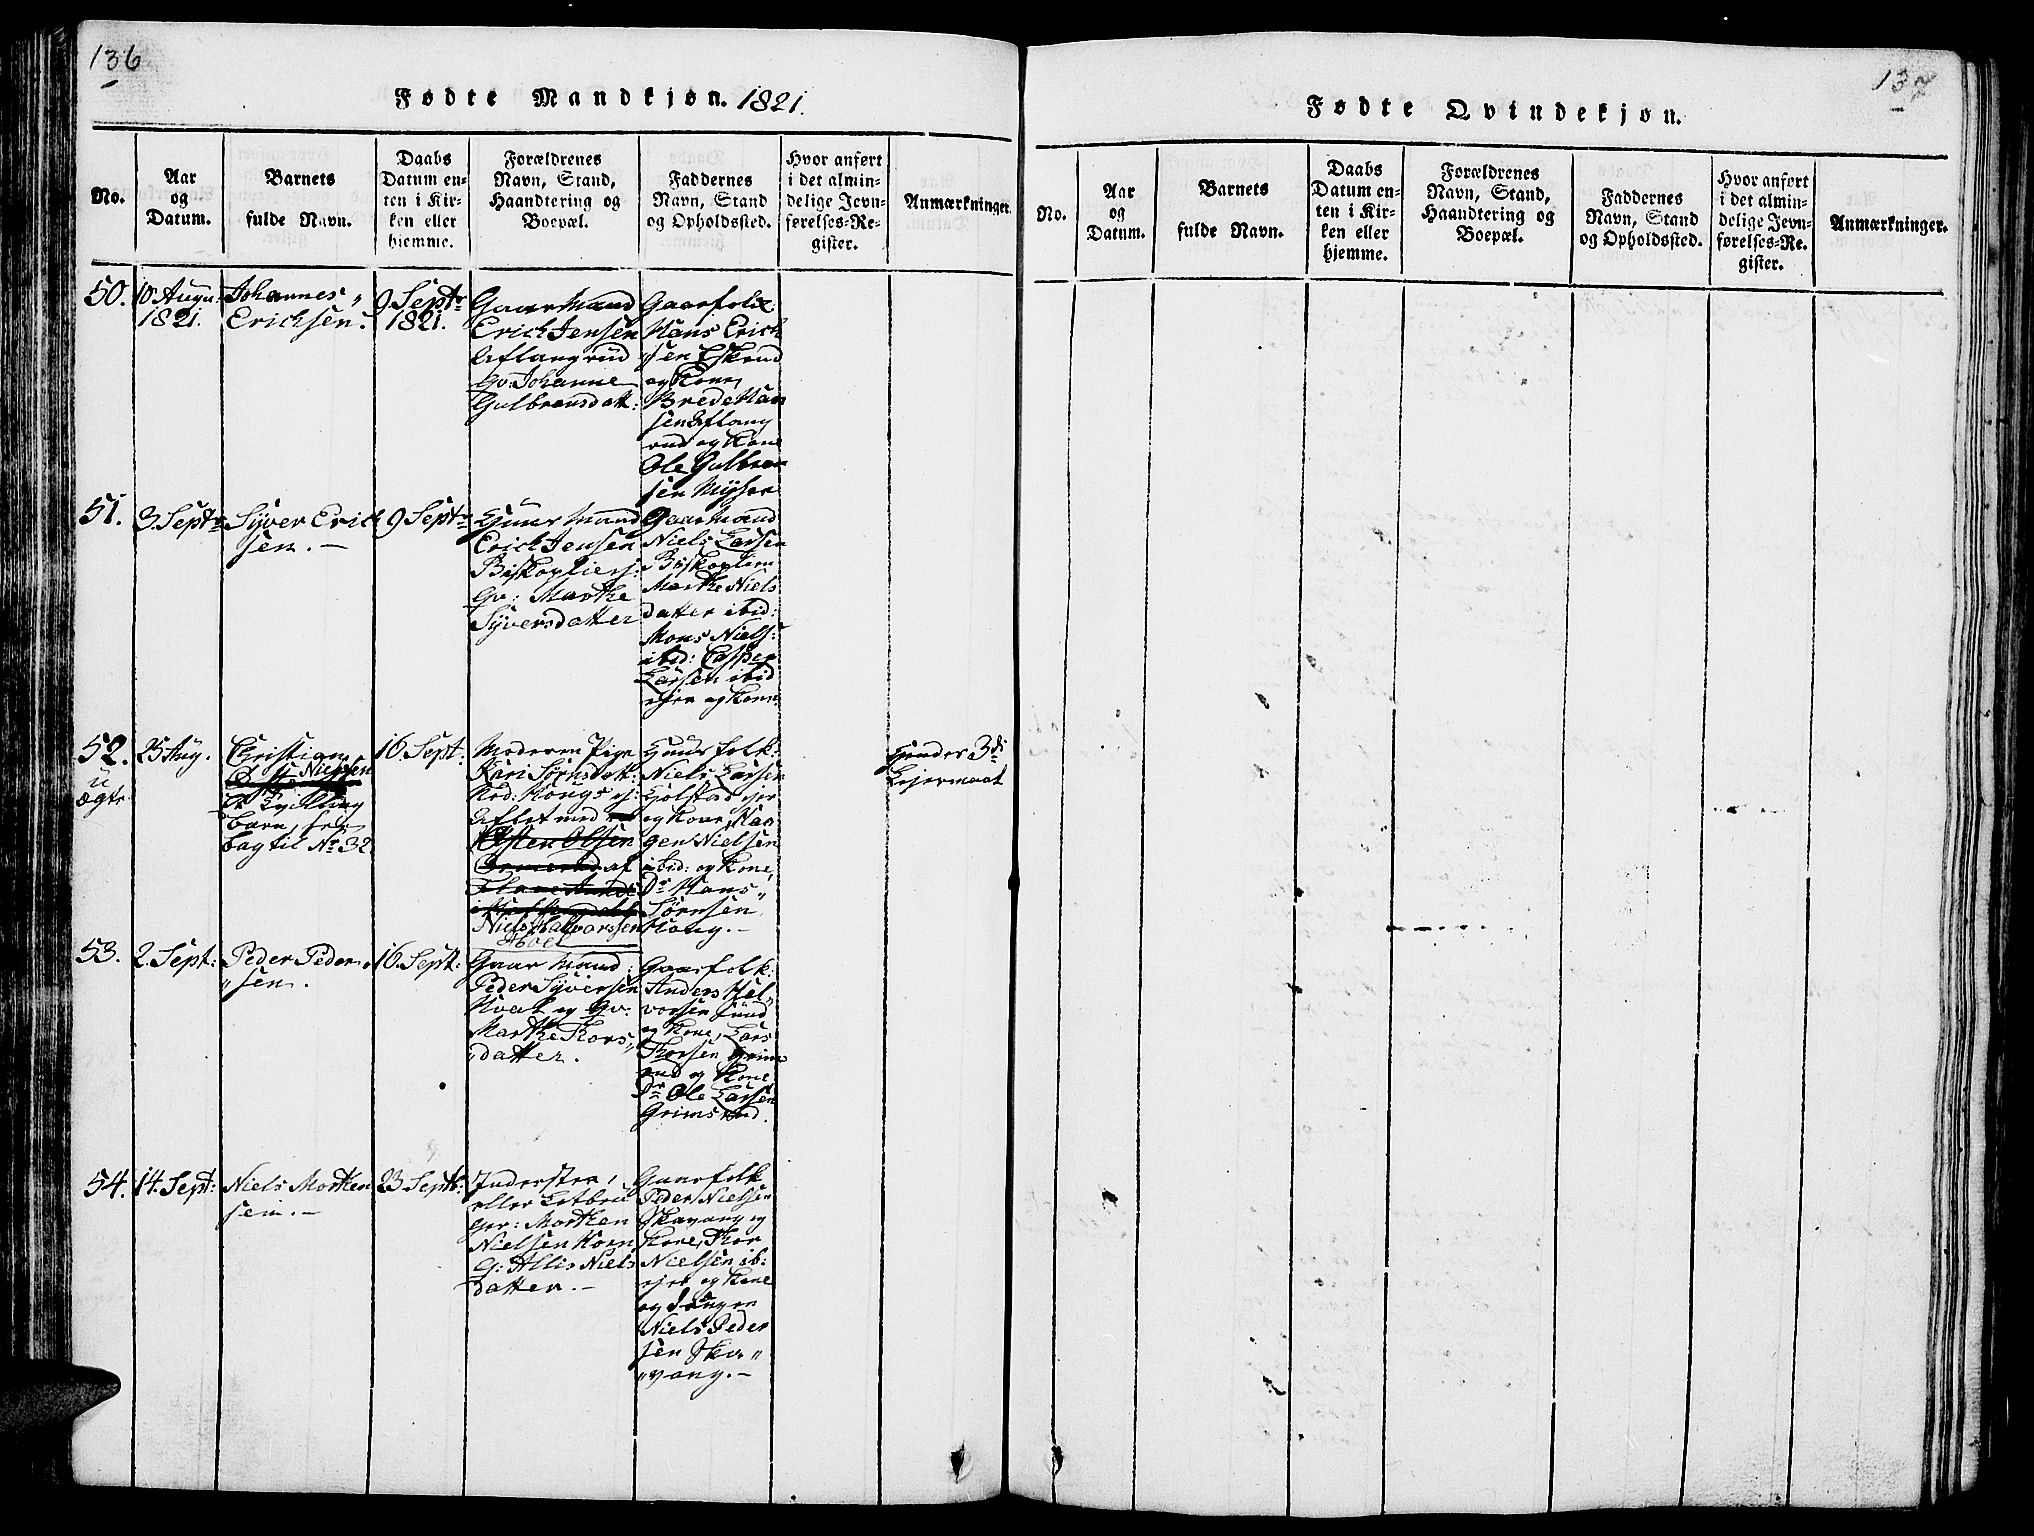 136
Fødte Mandkjøn. 1821.
No.
Aar
og
Datum.
Barnets
fulde Navn.
Daabs
Datum en-
ten i Kir-
ken eller
hjemme.
Forældrenes
Navn, Stand,
Haandtering og
Boepæl.
Faddernes
Navn, Stand
og Opholdssted.
Hvor anført
i det almin-
delige Jevn-
førelses-Re-
gister.
Anmærkninger.
50.
10. Augu
1821.
Johannes
Erichsen.
9 Septr
1821.
Gaar Mand
Erich Jensen
Aflangrud
Gv: Johanne
Gulbransdatt:
Gaarfolk
Hans Erich
sen Eskrud
og Kone,
Brede Han
sen Aflang
rud og Kone
Ole Gulbran
sen Mysen
51.
3. Septr
Syver Erich
sen. —
9 Septr
Huus Mand
Erich Jensen
Biskoplier:
Gv: Marthe
Syversdatter
Gaar Mand
Niels Larsen
Biskoplien
Marthe Niels
datter ibid:
Mons Niels:
ibid: Casper
Larsen ibid
ejer og Kone
52.
u
ægte
25 Aug.
Christian
Nielsen
Et Tvilling
barn, see
bag til No 32
16. Sept:
Moderen Pige
Kari Sørnsdatt:
Hougs ej:
Aflet med
Østen Olsen
af
Niels Halvorssen
Hoel
Huus folk:
Niels Larsen
Hjolstad ejer
og Kone, Haa
gen Nielsen
ibid: og Kone,
Dr Hans
Sørnsen
Houg. —
Hendes 3di
Lejermaal
53.
2. Sept:
Peder Peder
sen.
16. Sept:
Gaar Mand:
Peder Syversen
Hval og Gv:
Marthe Thors
datter.
Gaarfolk:
Anders Hal
vorsen Juud
og Kone, Lars
Thorsen Grim
rud og Kone
Dr Ole Larsen
Grimsrud.
54.
14. Sept:
Niels Morten
sen. —
23 Septb:
Inderster,
eller
Ger: Morthen
Nielsen Horn
G: Allis Niels
datter. —
Gaarfolk
Peder Nielsen
Skavang og
Kone, Thor
Nielsen ib:
ejer og Kone
og Drengen
Niels Peder
sen Ska
vang. —
137
Fødte Qvindekjøn.
No.
Aar
og
Datum.
Barnets
fulde Navn.
Daabs
Datum en-
ten i Kir-
ken eller
hjemme.
Forældrenes
Navn, Stand,
Haandtering og
Boepæl.
Faddernes
Navn, Stand
og Opholdssted.
Hvor anført
i det almin-
delige Jevn-
førelses-Re-
gister.
Anmærkninger.